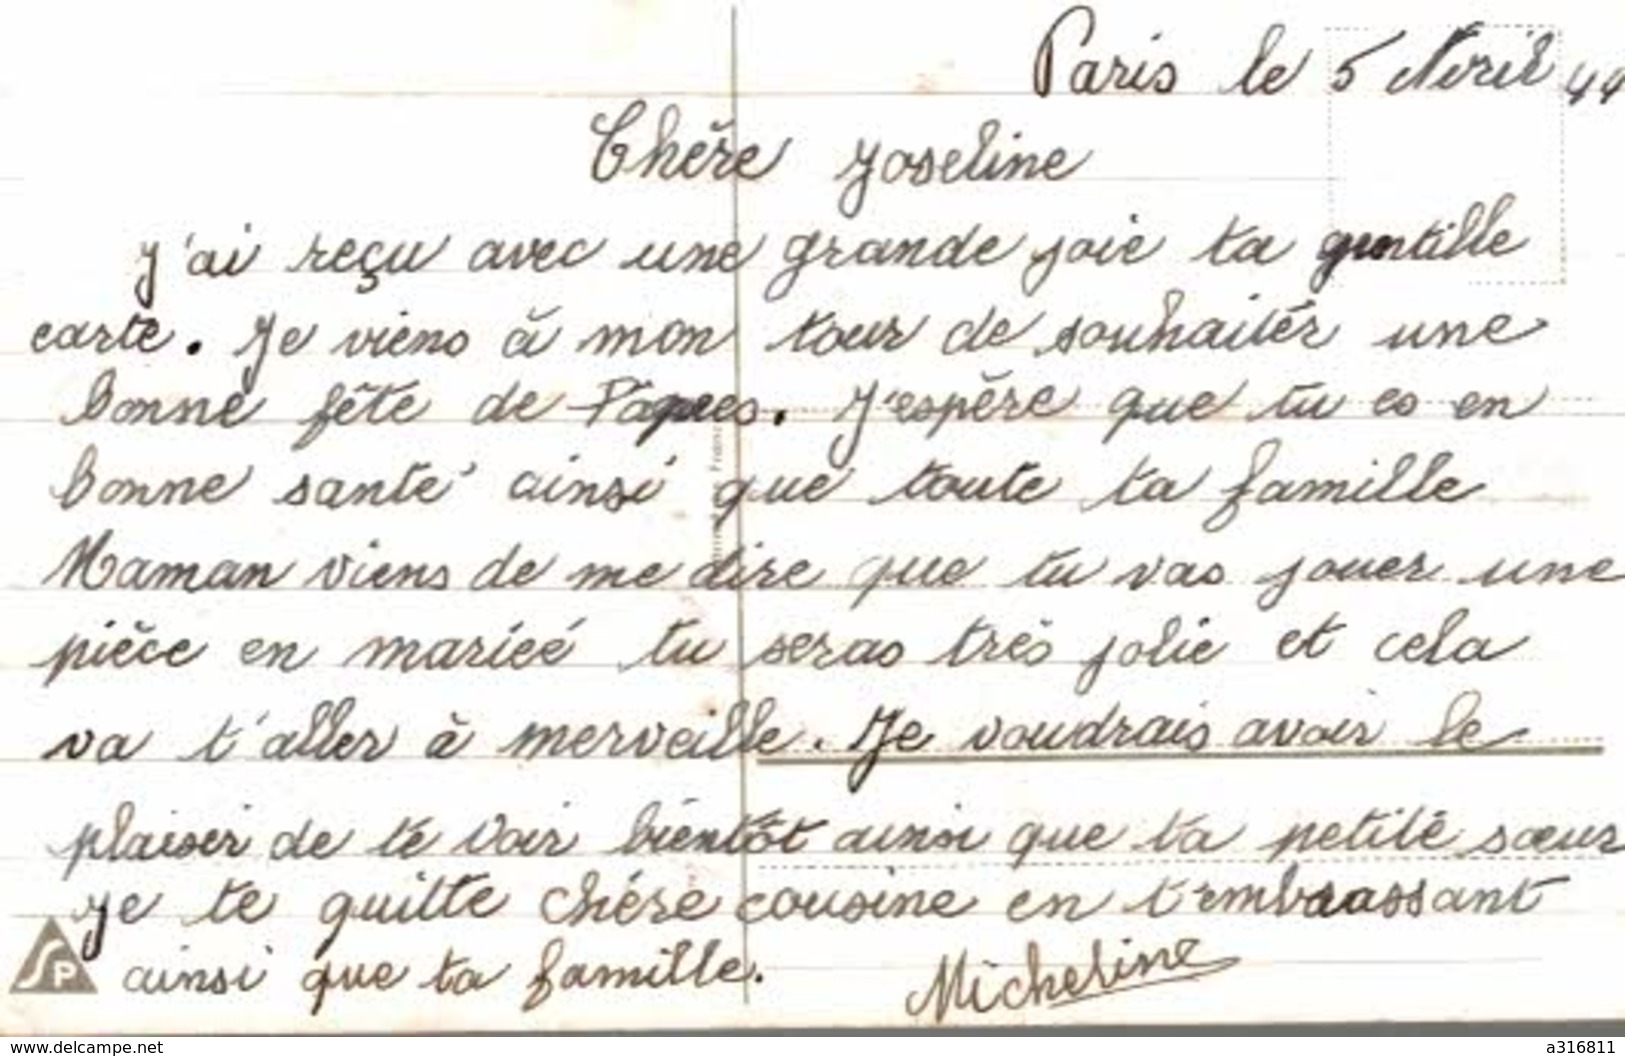 Paris le 5 Avril 44
Chère Joseline
J'ai reçu avec une grande joie ta gentille
carte. Je viens à mon tour de souhaiter une
bonne fête de Pâques. J'espère que tu es en
bonne santé ainsi que toute ta famille
Maman viens de me dire que tu vas jouer une
pièce en mariée tu seras très jolie et cela
va t'aller à merveille. Je voudrais avoir le
plaiser de te voir bientôt ainsi que ta petite sœur
Je te quitte chère cousine en t'embraassant
ainsi que ta famille. Micheline
SP
www.delcampe.net
a316811